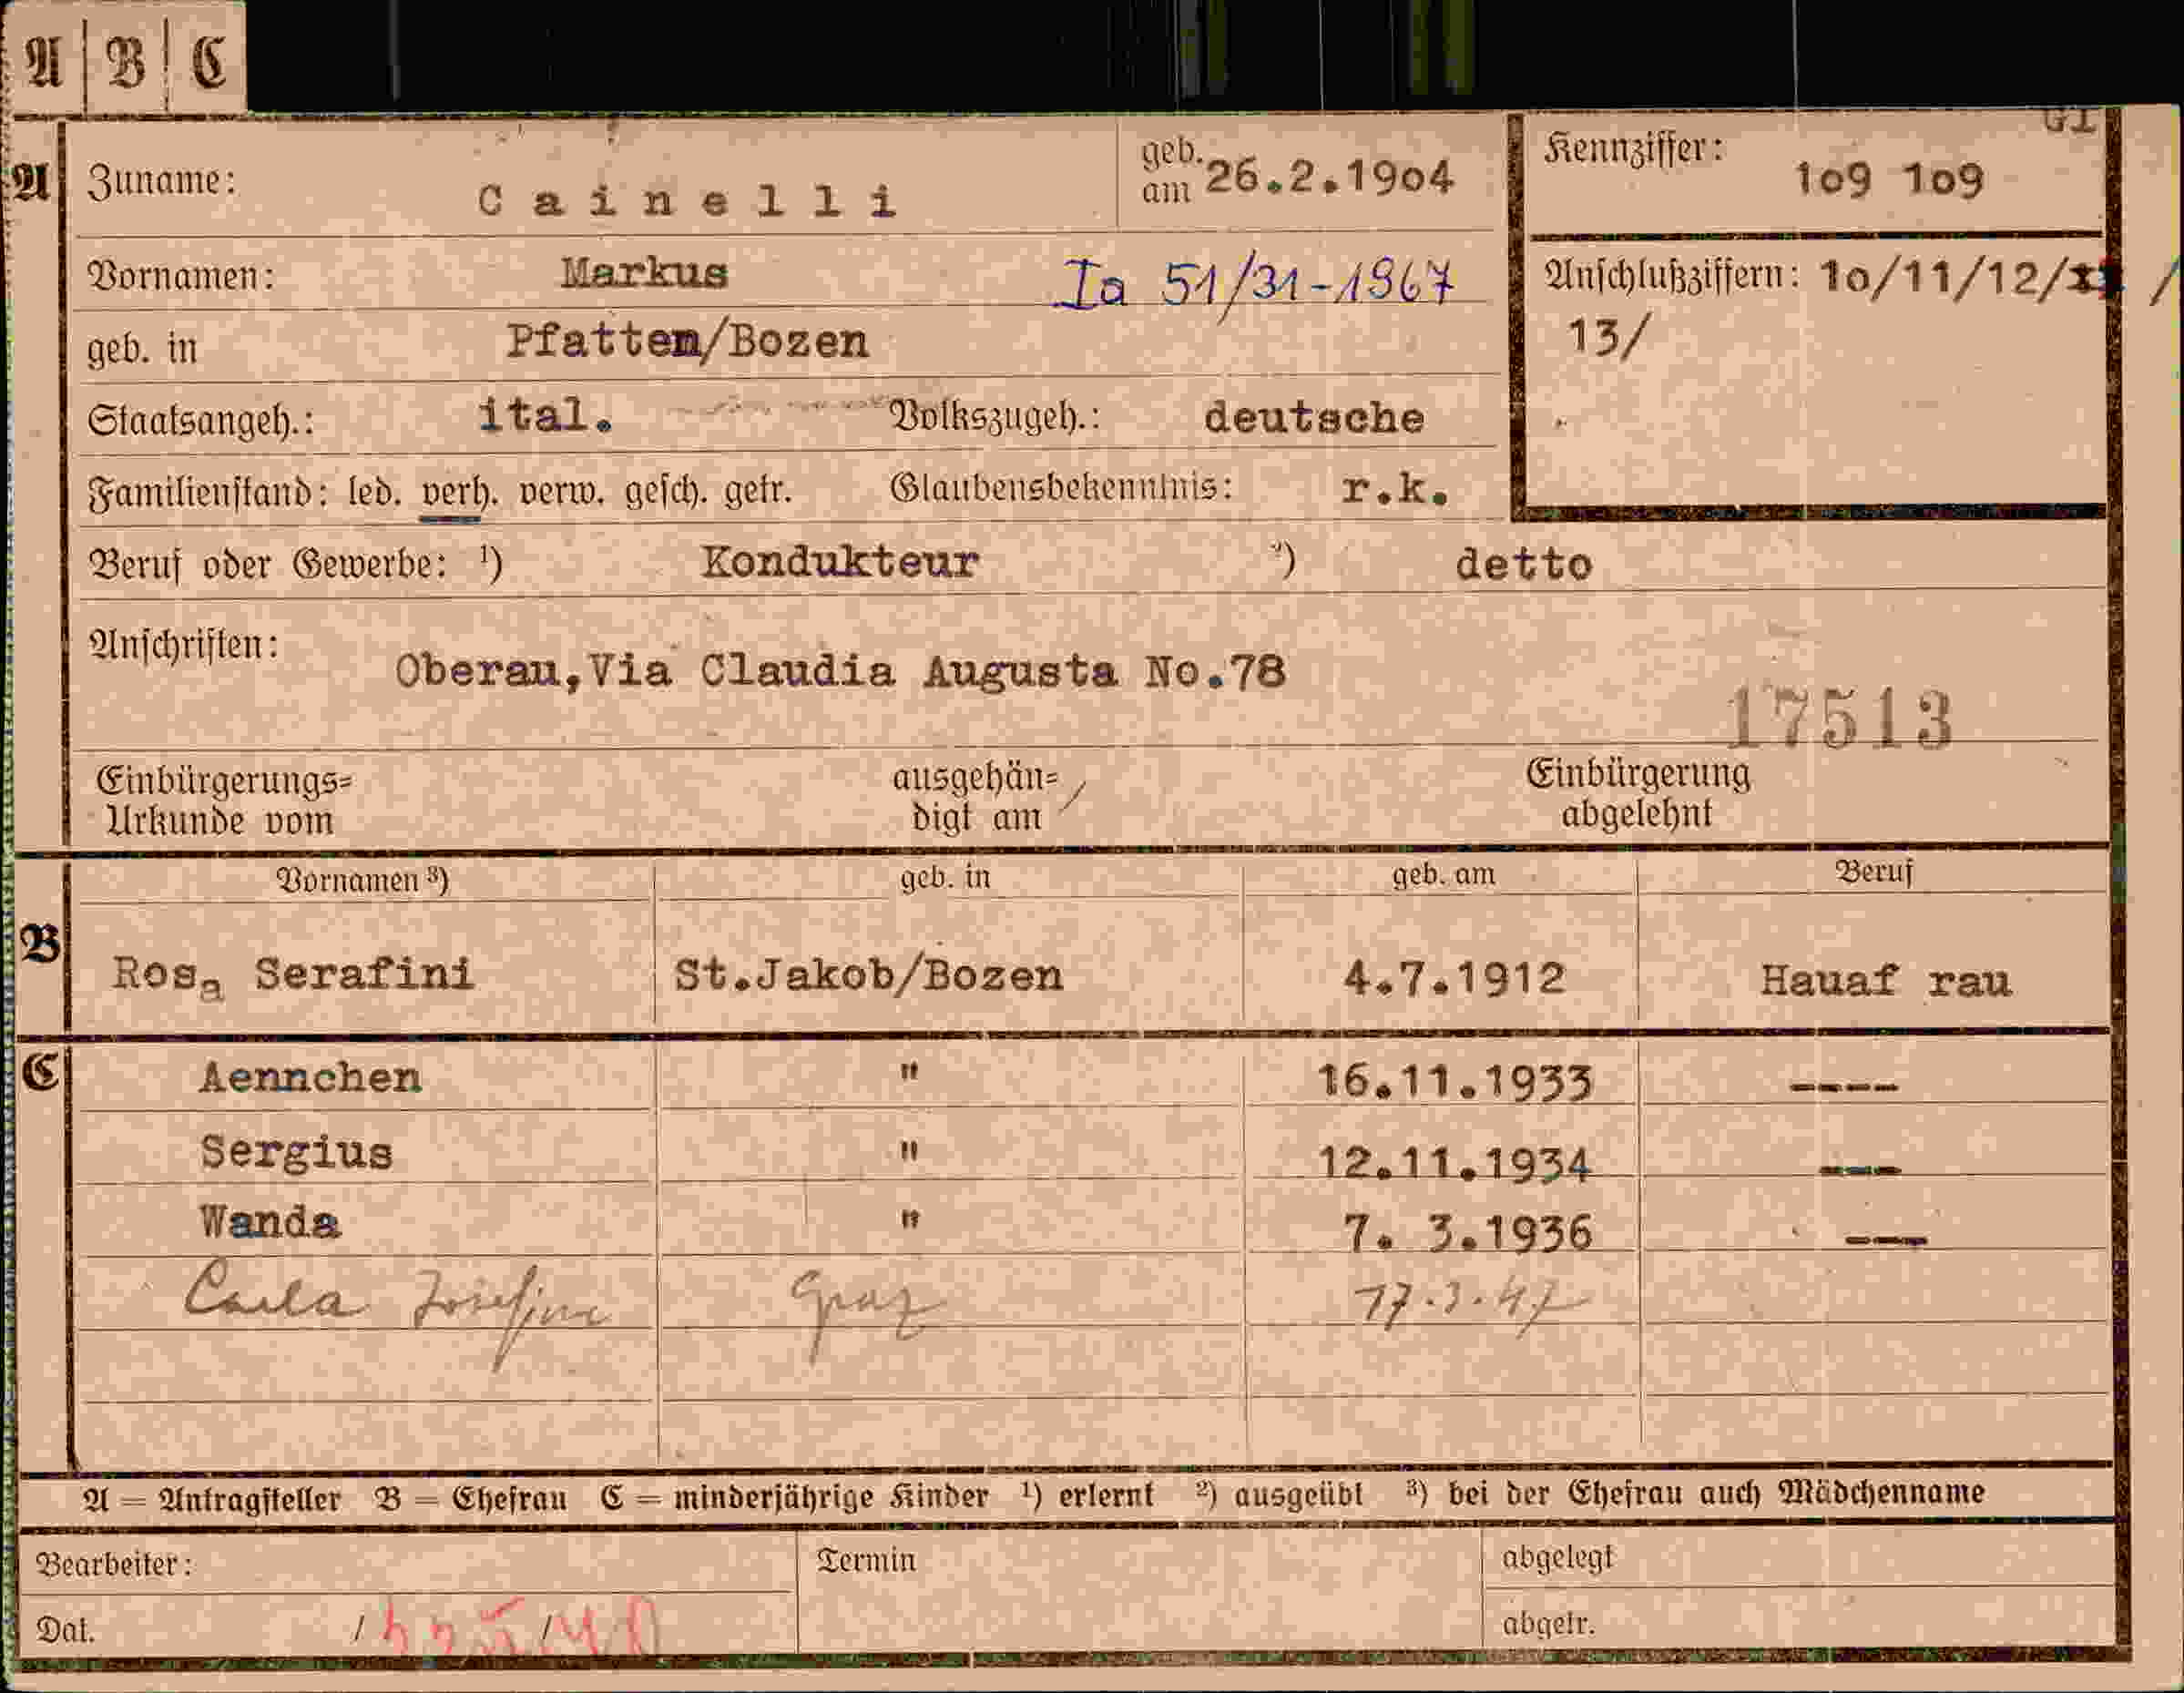 A B C
GI
A Zuname: Cainelli geb. am 26.2.1904 Kennziffer: 109 109
Vornamen: Markus Ia 51/31-1967 Anschlußziffern: 10/11/12/ /
13/
geb. in Pfatten/Bozen
Staatsangeh.: ital. Volkszugeh.: deutsche
Familienstand: led. verh. verw. gesch. getr. Glaubensbekenntnis: r.k.
Beruf oder Gewerbe: 1) Kondukteur 2) detto
Anschriften: Oberau,Via Claudia Augusta No.78
17513
Einbürgerungs= ausgehän= Einbürgerung
Urkunde vom digt am abgelehnt
Vornamen 3) geb. in geb. am Beruf
B Rosa Serafini St.Jakob/Bozen 4.7.1912 Hauaf rau
C Aennchen " 16.11.1933 ----
Sergius " 12.11.1934 ---
Wanda " 7. 3.1936 ---
Carla Josefine Graz
A = Antragsteller B = Ehefrau C = minderjährige Kinder 1) erlernt 2) ausgeübt 3) bei der Ehefrau auch Mädchenname
Bearbeiter: Termin abgelegt
Dat. abgetr.